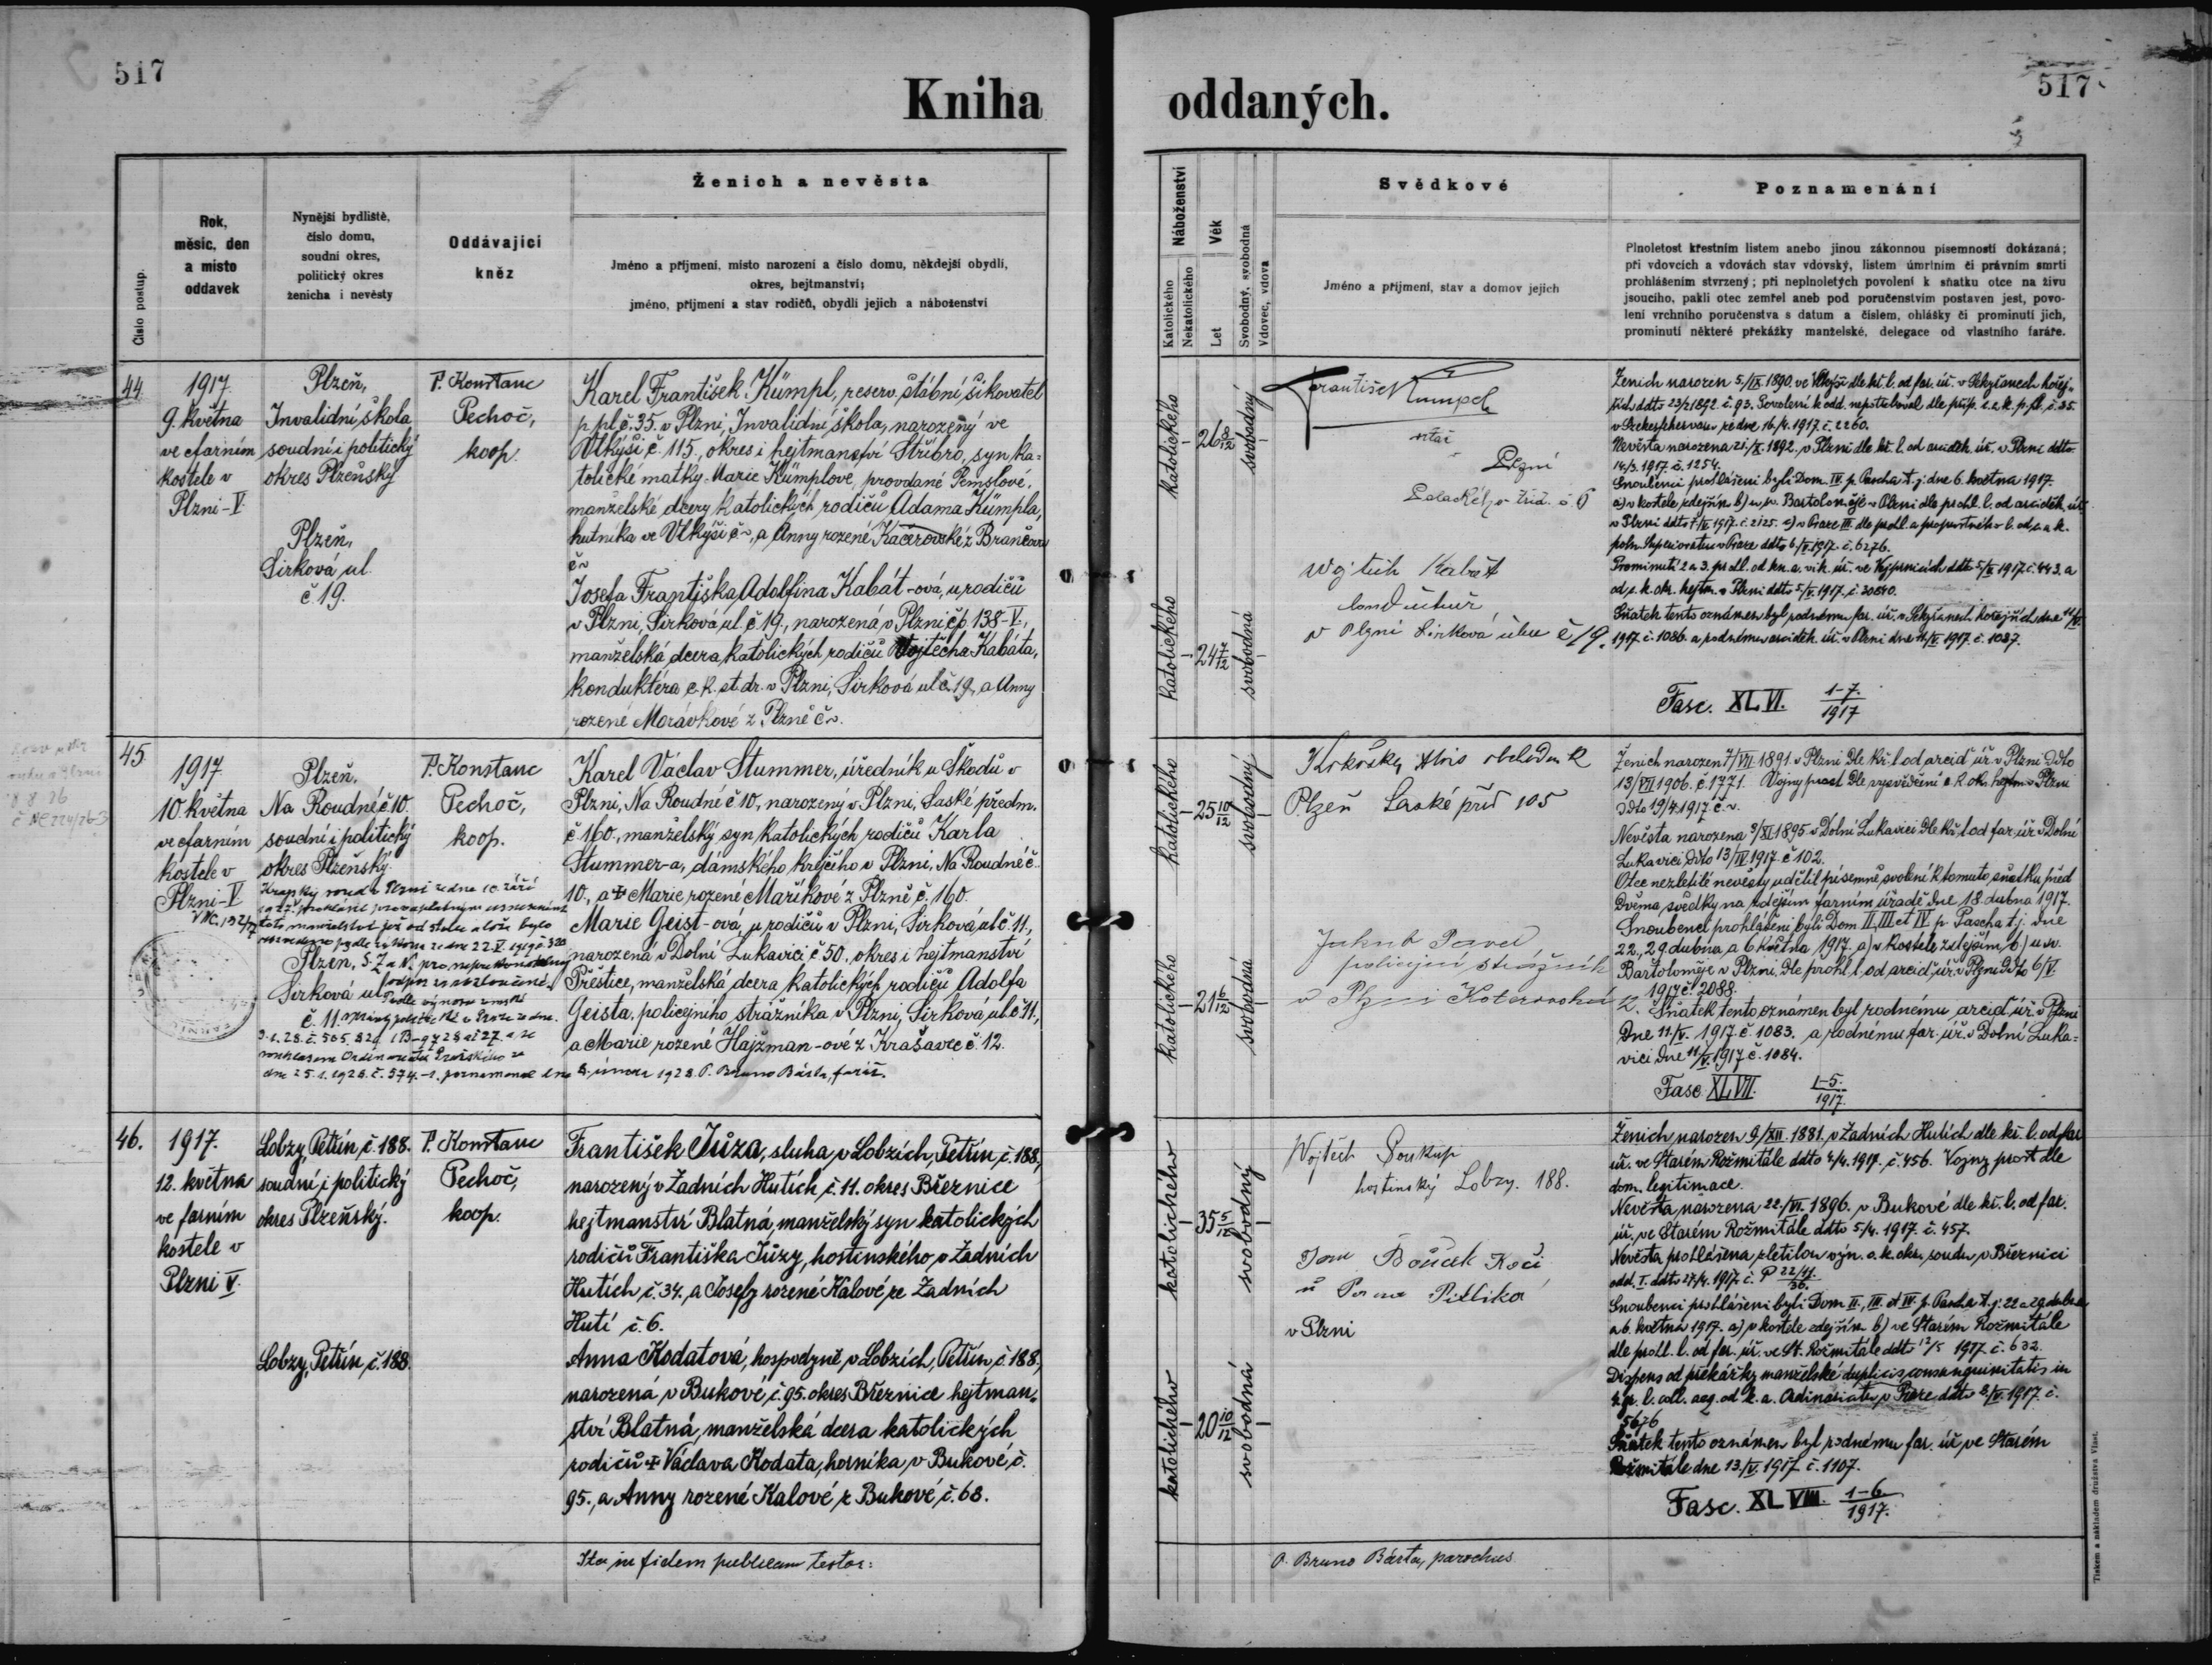 517
Kniha
Číslo postup.
Rok,
měsíc, den
a místo
oddavek
Nynější bydliště,
číslo domu,
soudní okres,
politický okres
ženicha i nevěsty
Oddávající
kněz
Ženich a nevěsta
Jméno a příjmení, místo narození a číslo domu, někdejší obydlí,
okres, hejtmanství;
jméno, příjmení a stav rodičů, obydlí jejich a náboženství
44
1917.
9. května
ve farním
kostele v
Plzni-V.
Plzeň,
Invalidní škola
soudní i politický
okres Plzeňský
Plzeň,
Sirková ul.
č 19.
P. Konstanc
Pechoč,
koop.
Karel František Kümpl, reserv. štábní šikovatel
p. pl. č. 35. v Plzni, Invalidní škola, narozený ve
Vlkýši č 115., okres i hejtmanství Stříbro, syn ka-
tolické matky Marie Kümplové, provdané Pemslové,
manželské dcery katolických rodičů Adama Kümpla,
hutníka ve Vlkýši č~, a Anny rozené Kačerovské z
č~
Josefa Františka Adolfina Kabát-ová, u rodičů
v Plzni, Sirková ul. č 19., narozená v Plzni čp. 138-V.,
manželská dcera katolických rodičů Vojtěcha Kabáta,
konduktéra c. k. st. dr. v Plzni, Sirková ul č. 19, a Anny
rozené Morávkové z Plzně č~.
45.
1917
10. května
ve farním
kostele v
Plzni-V
Plzeň.
Na Roudné č 10.
soudní i politický
okres Plzeňský.
Krajský soud v Plzni ze dne 10. září
podle zákona ze dne 22. V. 1919 č 320
Plzeň,
Sirková ul
č. 11.
dne 25.1.1928. č. 574.-1. poznamenal dne 8. února 1928. P. Bruno Bárta, farář.
P. Konstanc
Pechoč,
koop.
Karel Václav Stummer, úředník u Škodů v
Plzni, Na Roudné č 10., narozený v Plzni, Saské předm.
č 160., manželský syn katolických rodičů Karla
Stummer-a, dámského krejčího v Plzni, Na Roudné č.
10., a ✝ Marie rozené Maříkové z Plzně č. 160.
Marie Geist-ová, u rodičů v Plzni, Sirková ul č 11.,
narozená v Dolní Lukavici č 50., okres i hejtmanství
Přeštice, manželská dcera katolických rodičů Adolfa
Geista, policejního strážníka v Plzni, Sirková ul. č 11.,
a Marie rozené Hajžman-ové z Krašavec č. 12.
46.
1917.
12. května
ve farním
kostele v
Plzni V.
Lobzy, Petřín č. 188.
soudní i politický
okres Plzeňský.
Lobzy, Petřín č. 188
P. Konstanc
Pechoč,
koop.
František Jůza, sluha v Lobzích, Petřín č. 188,
narozený v Zadních Hutích č. 11. okres Březnice
hejtmanství Blatná, manželský syn katolických
rodičů Františka Jůzy, hostinského v Zadních
Hutích č. 34., a Josefy rozené Kalové ze Zadních
Hutí č. 6.
Anna Kodatová, hospodyně v Lobzích, Petřín č. 188.,
narozená v Bukové, č. 95. okres Březnice hejtman-
ství Blatná, manželská dcera katolických
rodičů ✝ Václava Kodata, horníka, v Bukové, č.
95., a Anny rozené Kalové z Bukové, č. 68.
Ita in fidem publicam testor:
517
oddaných.
Náboženství
Katolického
Nekatolického
Věk
Let
Svobodný, svobodná
Vdovec, vdova
Svědkové
Jméno a příjmení, stav a domov jejich
Poznamenání
Plnoletost křestním listem anebo jinou zákonnou písemností dokázaná;
při vdovcích a vdovách stav vdovský, listem úmrtním či právním smrti
prohlášením stvrzený; při neplnoletých povolení k sňatku otce na živu
jsoucího, pakli otec zemřel aneb pod poručenstvím postaven jest, povo-
lení vrchního poručenstva s datum a číslem, ohlášky či prominutí jich,
prominutí některé překážky manželské, delegace od vlastního faráře.
katolického
26 8/12
svobodný
katolického
24 7/12
svobodná
František Kumpel
Plzni
Palackého tříd. č 6
Wojtěch Kabát
konduktér,
v Plzni Sirková ulice č 19.
Ženich narozen 5/IX. 1890. ve Vlkýši dle kř. l. od far. úř. v
v Szekesfehervaru ze dne 16/4. 1917. č. 2260.
Nevěsta narozena 21/X. 1892. v Plzni dle kř. l. od arciděk. úř. v Plzni ddto
14/3. 1917. č. 1254.
Snoubenci prohlášeni byli Dom. IV. p. Pascha t. j. dne 6. května 1917.
a) v kostele zdejším b) u sv. Bartoloměje v Plzni dle prohl. l. od arciděk. úř.
od c. k. okr. hejtm. v Plzni ddto 5/V. 1917. č. 20840.
1917 č. 1086. a rodnému arciděk. úř. v Plzni dne 11/V. 1917. č. 1087.
Fasc. XLVI. 1-7./1917
katolického
25 10/12
svobodný
katolického
21 6/12
svobodná
Alois obchodník
Plzeň Saské před 105
Jakub Pavel,
policejní strážník
v Plzni Koterovská
Ženich narozen 7/VII. 1891. v Plzni dle kř. l. od arcid. úř. v Plzni ddto
13/VII 1906. č. 1771. Vojny prost dle vysvědčení c. k. okr. hejtm. v Plzni
ddto 19/4. 1917 č. ~.
Nevěsta narozena 9/XI. 1895 v Dolní Lukavici dle kř. l. od far. úř. v Dolní
Lukavici ddto 13/IV. 1917. č 102.
Otec nezletilé nevěsty udělil písemně svolení k tomuto sňatku před
dvěma svědky na zdejším farním úřadě dne 18. dubna 1917.
Snoubenci prohlášeni byli Dom II, III et IV p. Pascha t. j. dne
22., 29 dubna, a 6 května 1917. a) v kostele zdejším, b) u sv.
Bartoloměje v Plzni, dle prohl. l. od arcid. úř. v Plzni ddto 6/V.
1917 č. 2088.
Sňatek tento oznámen byl rodnému arcid. úř. v Plzni
dne 11/V. 1917 č 1083. a rodnému far. úř. v Dolní Luka-
vici dne 11/V. 1917 č. 1084.
Fasc. XLVII. 1-5./1917.
katolického
35 5/12
svobodný
katolického
20 10/12
svobodná
Wojtěch Soukup
hostinský Lobzy. 188.
Jan Kočí
u Pana
v Plzni
Ženich narozen 9/XII. 1881. v Zadních Hutích dle kř. l. od far
úř. ve Starém Rožmitále ddto 4/4. 1917. č. 456. Vojny prost dle
dom. legitimace.
Nevěsta narozena 22/VI. 1896. v Bukové dle kř. l. od far.
úř. ve Starém Rožmitále ddto 5/4. 1917. č. 457.
Nevěsta prohlášena zletilou výn. c. k. okr. soudu v Březnici
odd. I. ddto 27/4. 1917. č. P 22/11./36.
Snoubenci prohlášeni byli Dom II., III. et IV. p. Pascha t. j. 22 a 29 dubna
a 6. května 1917. a) v kostele zdejším b) ve Starém Rožmitále
dle prohl. l. od far. úř. ve St. Rožmitále ddto 12/5 1917. č. 632.
Dispens od překážky manželské duplicis consanguinitatis in
5676
Sňatek tento oznámen byl rodnému far. úř. ve Starém
Rožmitále dne 13/V. 1917 č. 1107.
Fasc. XLVIII. 1-6/1917.
P. Bruno Bárta, parochus
Tiskem a nákladem družstva Vlast.